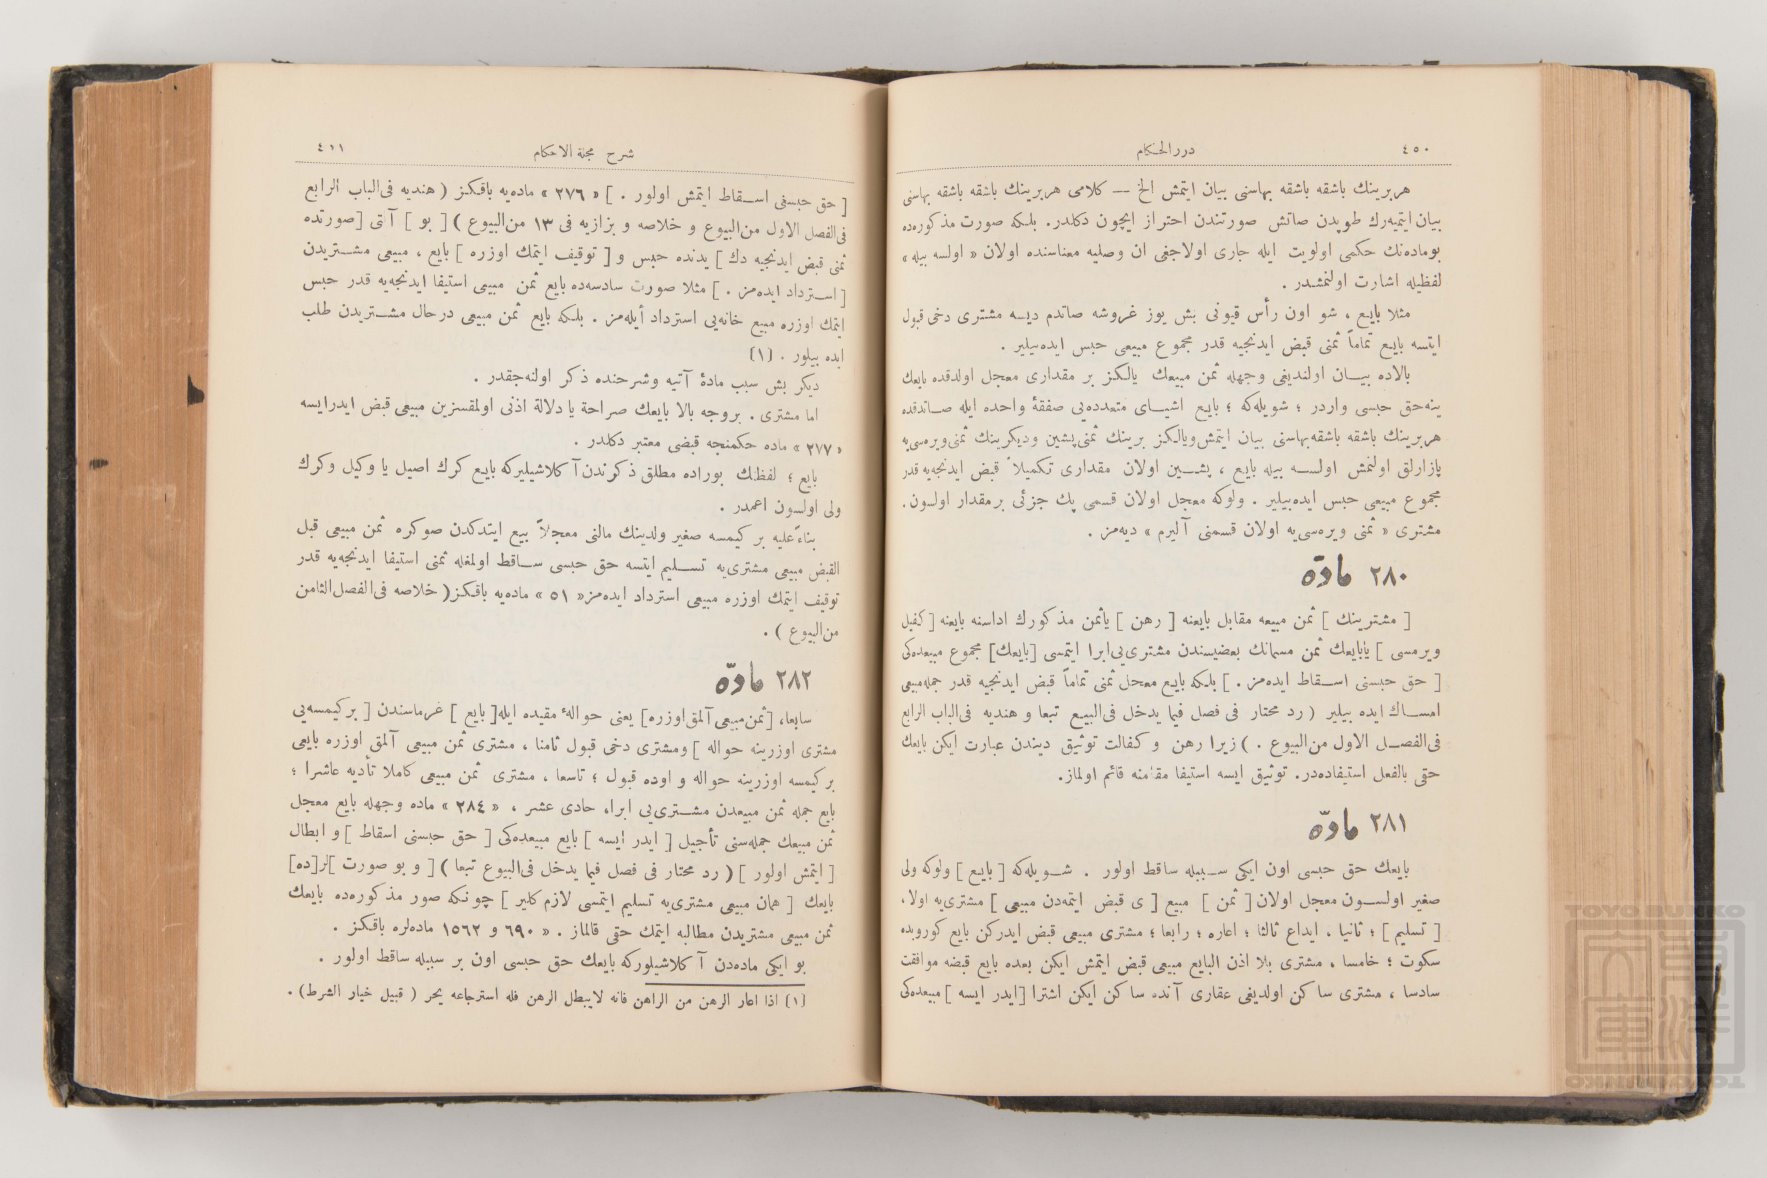 ٤٥٠
درر الحكام
هربرينك باشقه باشقه بهاسنى بيان ايتمش الخ — كلامى هربرينك باشقه باشقه بهاسنى
بيان ايتميه‌رك طوپدن صاتش صورتندن احتراز ايچون دكلدر. بلكه صورت مذكوره‌ده
بوماده‌نك حكمى اولويت ايله جارى اولاجغى ان وصليه معناسنده اولان « اولسه بيله »
لفظيله اشارت اولنمشدر .
مثلا بايع ، شو اون رأس قيونى بش يوز غروشه صاتدم ديسه مشترى دخى قبول
ايتسه بايع تماماً ثمنى قبض ايدنجيه قدر مجموع مبيعى حبس ايده‌بيلير .
بالاده بيان اولنديغى وجهله ثمن مبيعك يالكز بر مقدارى معجل اولدقده بايعك
ينه‌حق حبسى واردر ؛ شويله‌كه ؛ بايع اشياى متعدده‌يى صفقهٔ واحده ايله صاتدقده
هربرينك باشقه باشقه‌بهاسنى بيان ايتمش‌ويالكز برينك ثمنى‌پشين وديكرينك ثمنى‌ويره‌سى‌يه
پازارلق اولنمش اولسه بيله بايع ، پشين اولان مقدارى تكميلاً قبض ايدنجيه‌قدر
مجموع مبيعى حبس ايده‌بيلير . ولوكه معجل اولان قسمى پك جزئى برمقدار اولسون.
مشترى « ثمنى ويره‌سى‌يه اولان قسمنى آليرم » ديه‌مز .
٢٨٠ مادّه
[ مشترينك ] ثمن مبيعه مقابل بايعنه [ رهن ] ياثمن مذكورك اداسنه بايعنه [ كفيل
ويرمسى ] يابايعك ثمن مسمانك بعضيسندن مشترى‌يى‌ابرا ايتمسى [بايعك] مجموع مبيعده‌كى
[ حق حبسنى اسقاط ايده‌مز . ] بلكه بايع معجل ثمنى تماماً قبض ايدنجيه قدر جمله‌مبيعى
امساك ايده بيلير ( رد محتار فى فصل فيما يدخل فى‌البيع تبعا و هنديه فى‌الباب الرابع
فى‌الفصل الاول من‌البيوع . ) زيرا رهن و كفالت توثيق ديندن عبارت ايكن بايعك
حقى بالفعل استيفاده‌در. توثيق ايسه استيفا مقامنه قائم اولماز.
٢٨١ مادّه
بايعك حق حبسى اون ايكى سببله ساقط اولور . شويله‌كه [ بايع ] ولوكه ولى
صغير اولسون معجل اولان [ ثمن ] مبيع [ ى قبض ايتمه‌دن مبيعى ] مشترى‌يه اولا،
[ تسليم ] ؛ ثانيا ، ايداع ثالثا ؛ اعاره ؛ رابعا ؛ مشترى مبيعى قبض ايدركن بايع كوروبده
سكوت ؛ خامسا ، مشترى بلا اذن البايع مبيعى قبض ايتمش ايكن بعده بايع قبضه موافقت
سادسا ، مشترى ساكن اولديغى عقارى آنده ساكن ايكن اشترا [ايدر ايسه ] مبيعده‌كى
شرح مجلة الاحكام
٤١١
[ حق حبسنى اسقاط ايتمش اولور . ] « ٢٧٦ » ماده‌يه باقكز ( هنديه فى‌الباب الرابع
فى‌الفصل الاول من‌البيوع و خلاصه و بزازيه فى ١٣ من‌البيوع ) [ بو ] آتى [صورتده
ثمنى قبض ايدنجيه دك ] يدنده حبس و [ توقيف ايتمك اوزره ] بايع ، مبيعى مشتريدن
[ استرداد ايده‌مز . ] مثلا صورت سادسه‌ده بايع ثمن مبيعى استيفا ايدنجه‌يه قدر حبس
ايتمك اوزره مبيع خانه‌يى استرداد أيله‌مز . بلكه بايع ثمن مبيعى درحال مشتريدن طلب
ايده بيلور . (١)
ديكر بش سبب مادهٔ آتيه وشرحنده ذكر اولنه‌جقدر .
اما مشترى . بروجه بالا بايعك صراحة يا دلالة اذنى اولمقسزين مبيعى قبض ايدرايسه
« ٢٧٧ » ماده حكمنجه قبضى معتبر دكلدر .
بايع ؛ لفظنك بوراده مطلق ذكرندن آكلاشيليركه بايع كرك اصيل يا وكيل وكرك
ولى اولسون اعمدر .
بناءً‌عليه بر كيمسه صغير ولدينك مالنى معجلاً بيع ايتدكدن صوكره ثمن مبيعى قبل
القبض مبيعى مشترى‌يه تسليم ايتسه حق حبسى ساقط اولمغله ثمنى استيفا ايدنجه‌يه قدر
توقيف ايتمك اوزره مبيعى استرداد ايده‌مز« ٥١ » ماده‌يه باقكز( خلاصه فى‌الفصل‌الثامن
من‌البيوع ) .
٢٨٢ مادّه
سابعا، [ثمن‌مبيعى‌آلمق‌اوزره] يعنى حوالهٔ مقيده ايله[ بايع ] غرماسندن [ بركيمسه‌يى
مشترى اوزرينه حواله ] ومشترى دخى قبول ثامنا ، مشترى ثمن مبيعى آلمق اوزره بايعى
بر كيمسه اوزرينه حواله و اوده قبول ؛ تاسعا ، مشترى ثمن مبيعى كاملا تأديه عاشرا ؛
بايع جمله ثمن مبيعدن مشترى‌يى ابرا، حادى عشر ، « ٢٨٤ » ماده وجهله بايع معجل
ثمن مبيعك جمله‌سنى تأجيل [ ايدر ايسه ] بايع مبيعده‌كى [ حق حبسنى اسقاط ] و ابطال
[ ايتمش اولور ] ( رد محتار فى فصل فيما يدخل فى‌البيوع تبعا ) [ و بو صورت ]لر[ده]
بايعك [ همان مبيعى مشترى‌يه تسليم ايتمسى لازم كلير ] چونكه صور مذكوره‌ده بايعك
ثمن مبيعى مشتريدن مطالبه ايتمك حقى قالماز . « ٦٩٠ و ١٥٦٢ ماده‌لره باقكز .
بو ايكى ماده‌دن آكلاشيلوركه بايعك حق حبسى اون بر سببله ساقط اولور .
(١) اذا اعار الرهن من الراهن فانه لايبطل الرهن فله استرجاعه بحر ( قبيل خيار الشرط) .
TOYO BUNKO